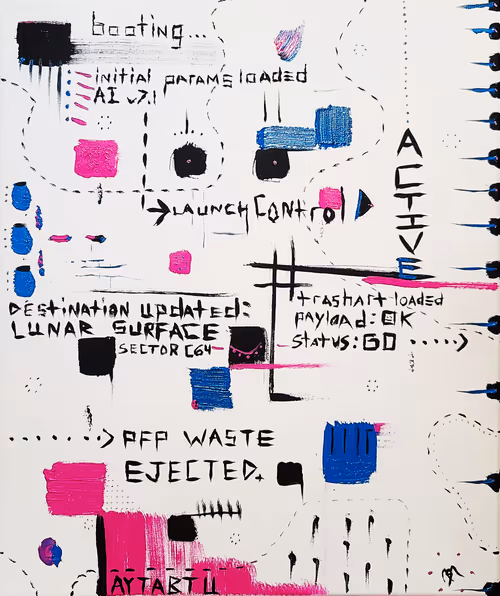 booting...
initial params loaded
AI v7.1
LAUNCH Control
ACTIVE
DEStination updated:
LUNAR SURFACE
SECTOR C64
trashart loaded
payload: OK
status: GO
PFP WASTE
EJECTED.
AYTABTU